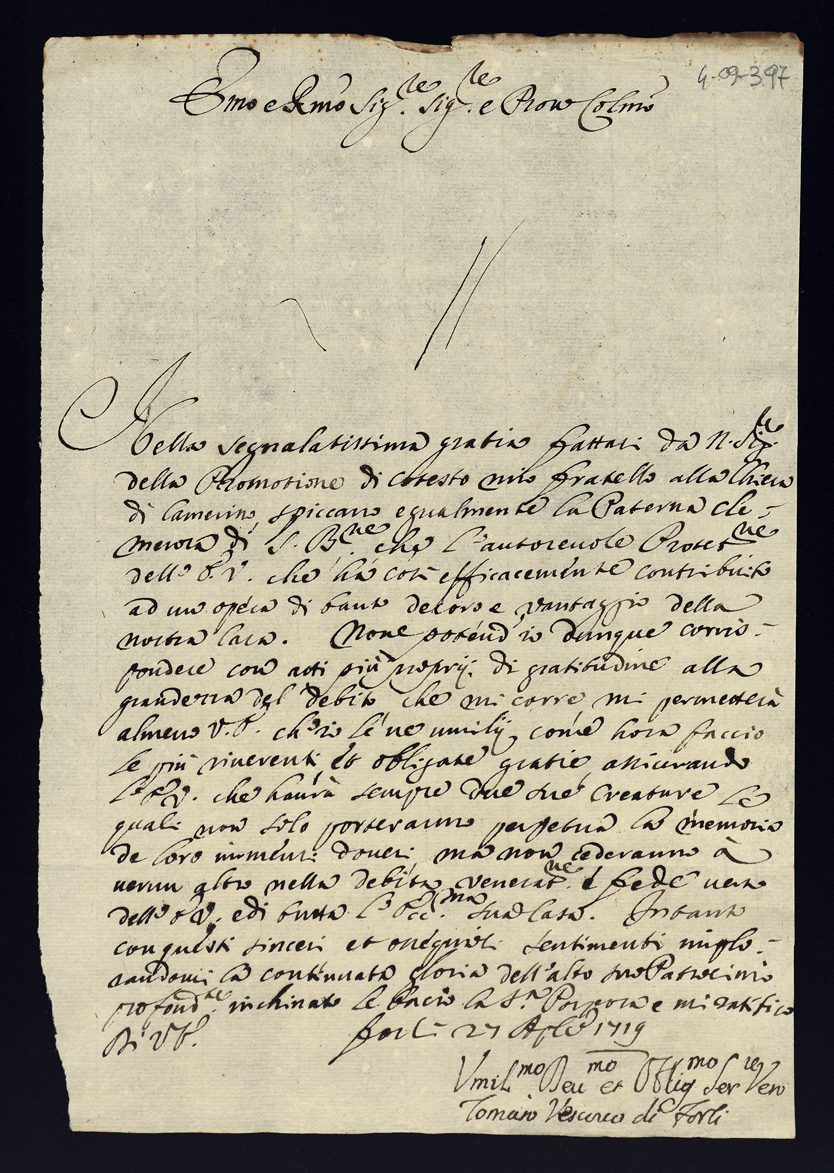 4-09-397
Emo e Rmo Sig.re Sig.re e Pron Colmo
Nella segnalatissima gratia fattasi da N. Sig.re
della Promotione di cotesto mio fratello alla Chiesa
di Camerino spiccano egualmente la Paterna cle-
menza di S. B.ne che l'autorevole Protet.ne
dell' E. V. che hà così efficacemente contribuito
ad un opera di tanto decoro e vantaggio della
nostra Casa. Non potend' io dunque corris-
pondere con atti più proprij di gratitudine alla
grandezza del debito che mi corre mi permetterà
almeno V. E. ch' io le ne umilij, come hora faccio
le più riverenti et obligate gratie assicurando
l' E. V. che haurà sempre due sue Creature le
quali non solo porteranno perpetua la memoria
de loro immensi doveri, ma non cederanno à
verun altro nella debita venerat.ne e fede verso
dell' E. V. e di tutta l' Ecc.ma sua Casa. Intanto
con questi sinceri et ossequiosi sentimenti implo-
randomi la continuata gloria dell' alto suo Patrocinio
profond.te inchinato le bacio la S.ra Porpora e mi ratifico
Di V. E. Forlì 27 Aple 1719
Umil.mo Deu.mo et Oblig.mo Ser.re Vero
Tomaso Vescovo di Forli